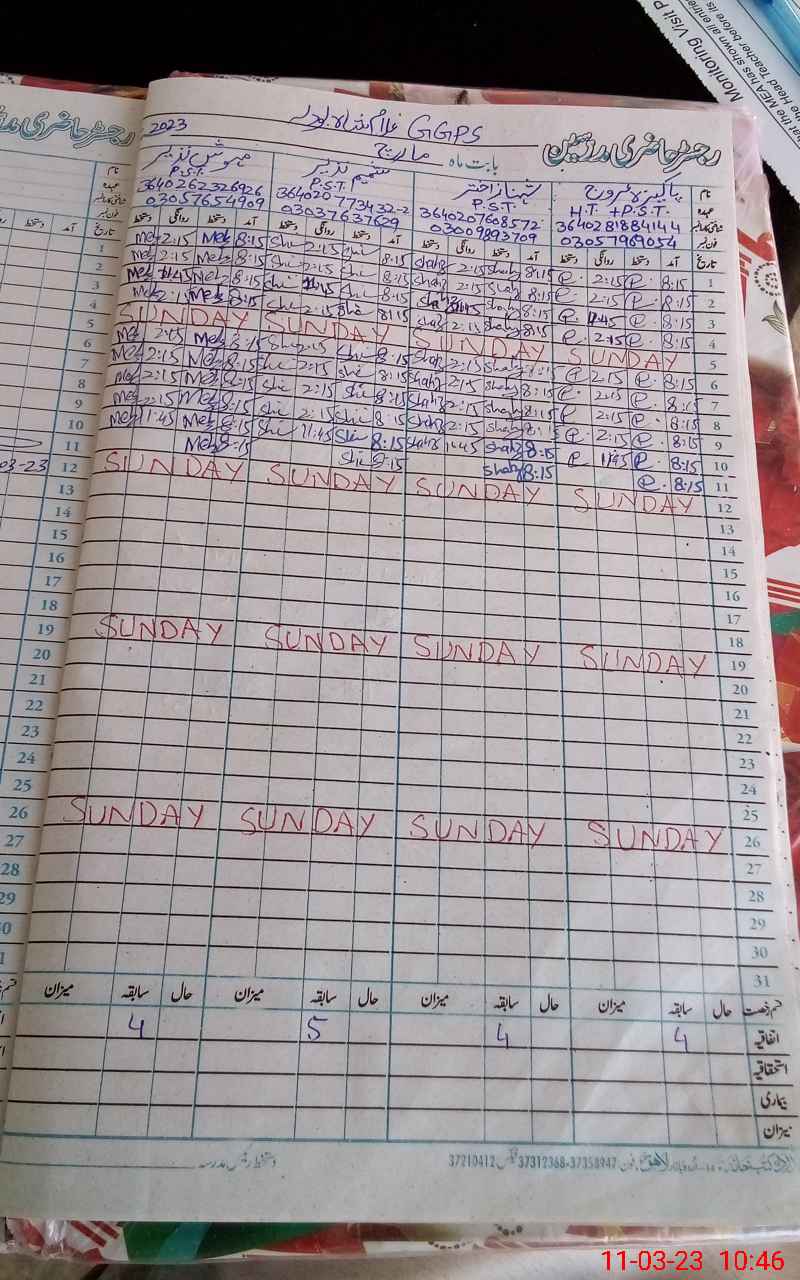 Monitoring Visit P
that the MEA has shown all entries
the Head Teacher before its
رجسٹر حاضری مدرسین
بابت ماہ مارچ
GGPS غلام شاہ
2023
نام
شمیم نذیر
مہوش نذیر
شہناز اختر
عہدہ
H.T. + P.S.T.
P.S.T.
P.S.T.
P.S.T.
3640281884144
3640207608572
364020773432-2
3640262326926
فون نمبر
03057969054
03009893709
03037637629
03057654909
تاریخ آمد دستخط روانگی دستخط آمد دستخط روانگی دستخط آمد دستخط روانگی دستخط آمد دستخط روانگی دستخط
1 8:15 @. 2:15 @. 8:15 Shah 2:15 Shah 8:15 Shi 2:15 Shi 8:15 Meh 2:15 Meh
2 8:15 @. 2:15 @. 8:15 Shah 2:15 Shah 8:15 Shi 2:15 Shi 8:15 Meh 2:15 Meh
3 8:15 @. 11:45 @. 8:15 Shah 11:45 Shah 8:15 Shi 11:45 Shi 8:15 Meh 11:45 Meh
4 8:15 @. 2:15 @. 8:15 Shah 2:15 Shah 8:15 Shi 2:15 Shi 8:15 Meh 2:15 Meh
5 SUNDAY SUNDAY SUNDAY SUNDAY
6 8:15 @. 2:15 @. 8:15 Shah 2:15 Shah 8:15 Shi 2:15 Shi 8:15 Meh 2:15 Meh
7 8:15 @. 2:15 @. 8:15 Shah 2:15 Shah 8:15 Shi 2:15 Shi 8:15 Meh 2:15 Meh
8 8:15 @. 2:15 @. 8:15 Shah 2:15 Shah 8:15 Shi 2:15 Shi 8:15 Meh 2:15 Meh
9 8:15 @. 2:15 @. 8:15 Shah 2:15 Shah 8:15 Shi 2:15 Shi 8:15 Meh 2:15 Meh
10 8:15 @. 11:45 @. 8:15 Shah 11:45 Shah 8:15 Shi 11:45 Shi 8:15 Meh 11:45 Meh
11 8:15 @. 8:15 Shah 8:15 Shi 8:15 Meh
12 SUNDAY SUNDAY SUNDAY SUNDAY
13
14
15
16
17
18
19 SUNDAY SUNDAY SUNDAY SUNDAY
20
21
22
23
24
25
26 SUNDAY SUNDAY SUNDAY SUNDAY
27
28
29
30
31
قسم رخصت حال سابقہ میزان حال سابقہ میزان حال سابقہ میزان حال سابقہ میزان
اتفاقیہ 4 4 5 4
استحقاقیہ
بیماری
میزان
فون 37358947-37312368 فیکس 37210412
دستخط رئیس مدرسہ
11-03-23 10:46